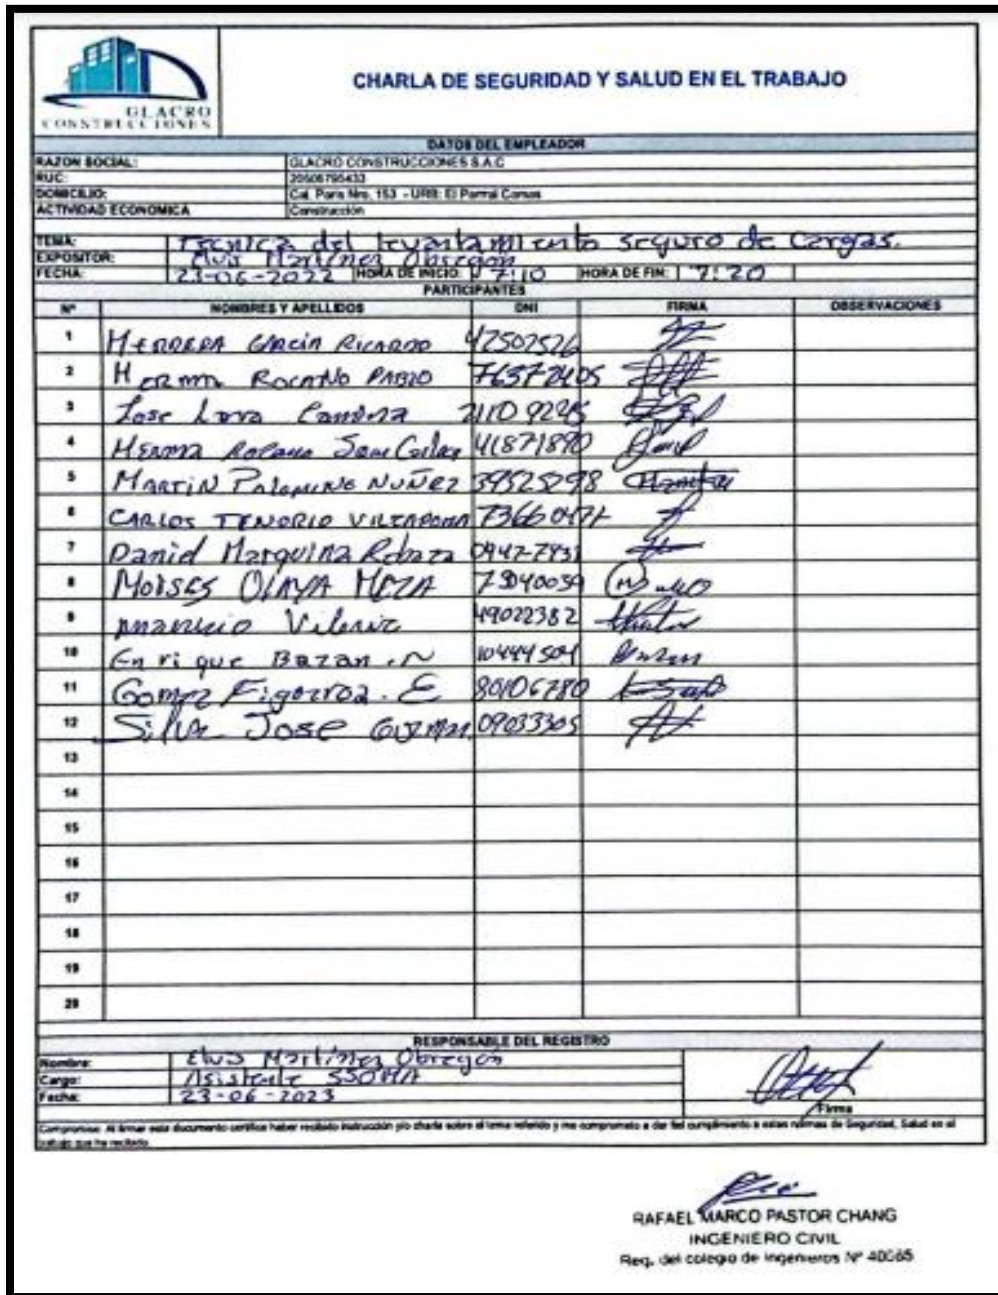 GLACRO
CONSTRUCCIONES
CHARLA DE SEGURIDAD Y SALUD EN EL TRABAJO
DATOS DEL EMPLEADOR
RAZON SOCIAL: GLACRO CONSTRUCCIONES S.A.C
RUC: 20506795433
DOMICILIO: Cal. Paris Nro. 153 - URB: El Parral Comas
ACTIVIDAD ECONOMICA Construcción
TEMA: Tecnica del levantamiento seguro de Cargas.
EXPOSITOR: Elvis Martinez Obregon
FECHA: 23-06-2022 HORA DE INICIO: 7:10 HORA DE FIN: 7:20
PARTICIPANTES
Nº NOMBRES Y APELLIDOS DNI FIRMA OBSERVACIONES
1 HERRERA GARCIA RICARDO 42507526
2 PABLO 76572405
3 Jose
4 41871890
5 MARTIN PALOMINO NUÑEZ
6 CARLOS TENORIO
7 Daniel Marquina
8 MOISES OLAYA MEZA
9 49022382
10 Enrique BAZAN .N 10444504
11 Gomez . E 80106780
12 Silva Jose GUZMAN 09033305
13
14
15
16
17
18
19
20
RESPONSABLE DEL REGISTRO
Nombre: Elvis Martinez Obregon
Cargo: Asistente SSOMA
Fecha: 23-06-2023
Firma
Compromiso: Al firmar este documento certifica haber recibido instrucción y/o charla sobre el tema referido y me comprometo a dar fiel cumplimiento a estas normas de Seguridad, Salud en el
trabajo que ha recibido.
RAFAEL MARCO PASTOR CHANG
INGENIERO CIVIL
Reg. del colegio de Ingenieros Nº 40065